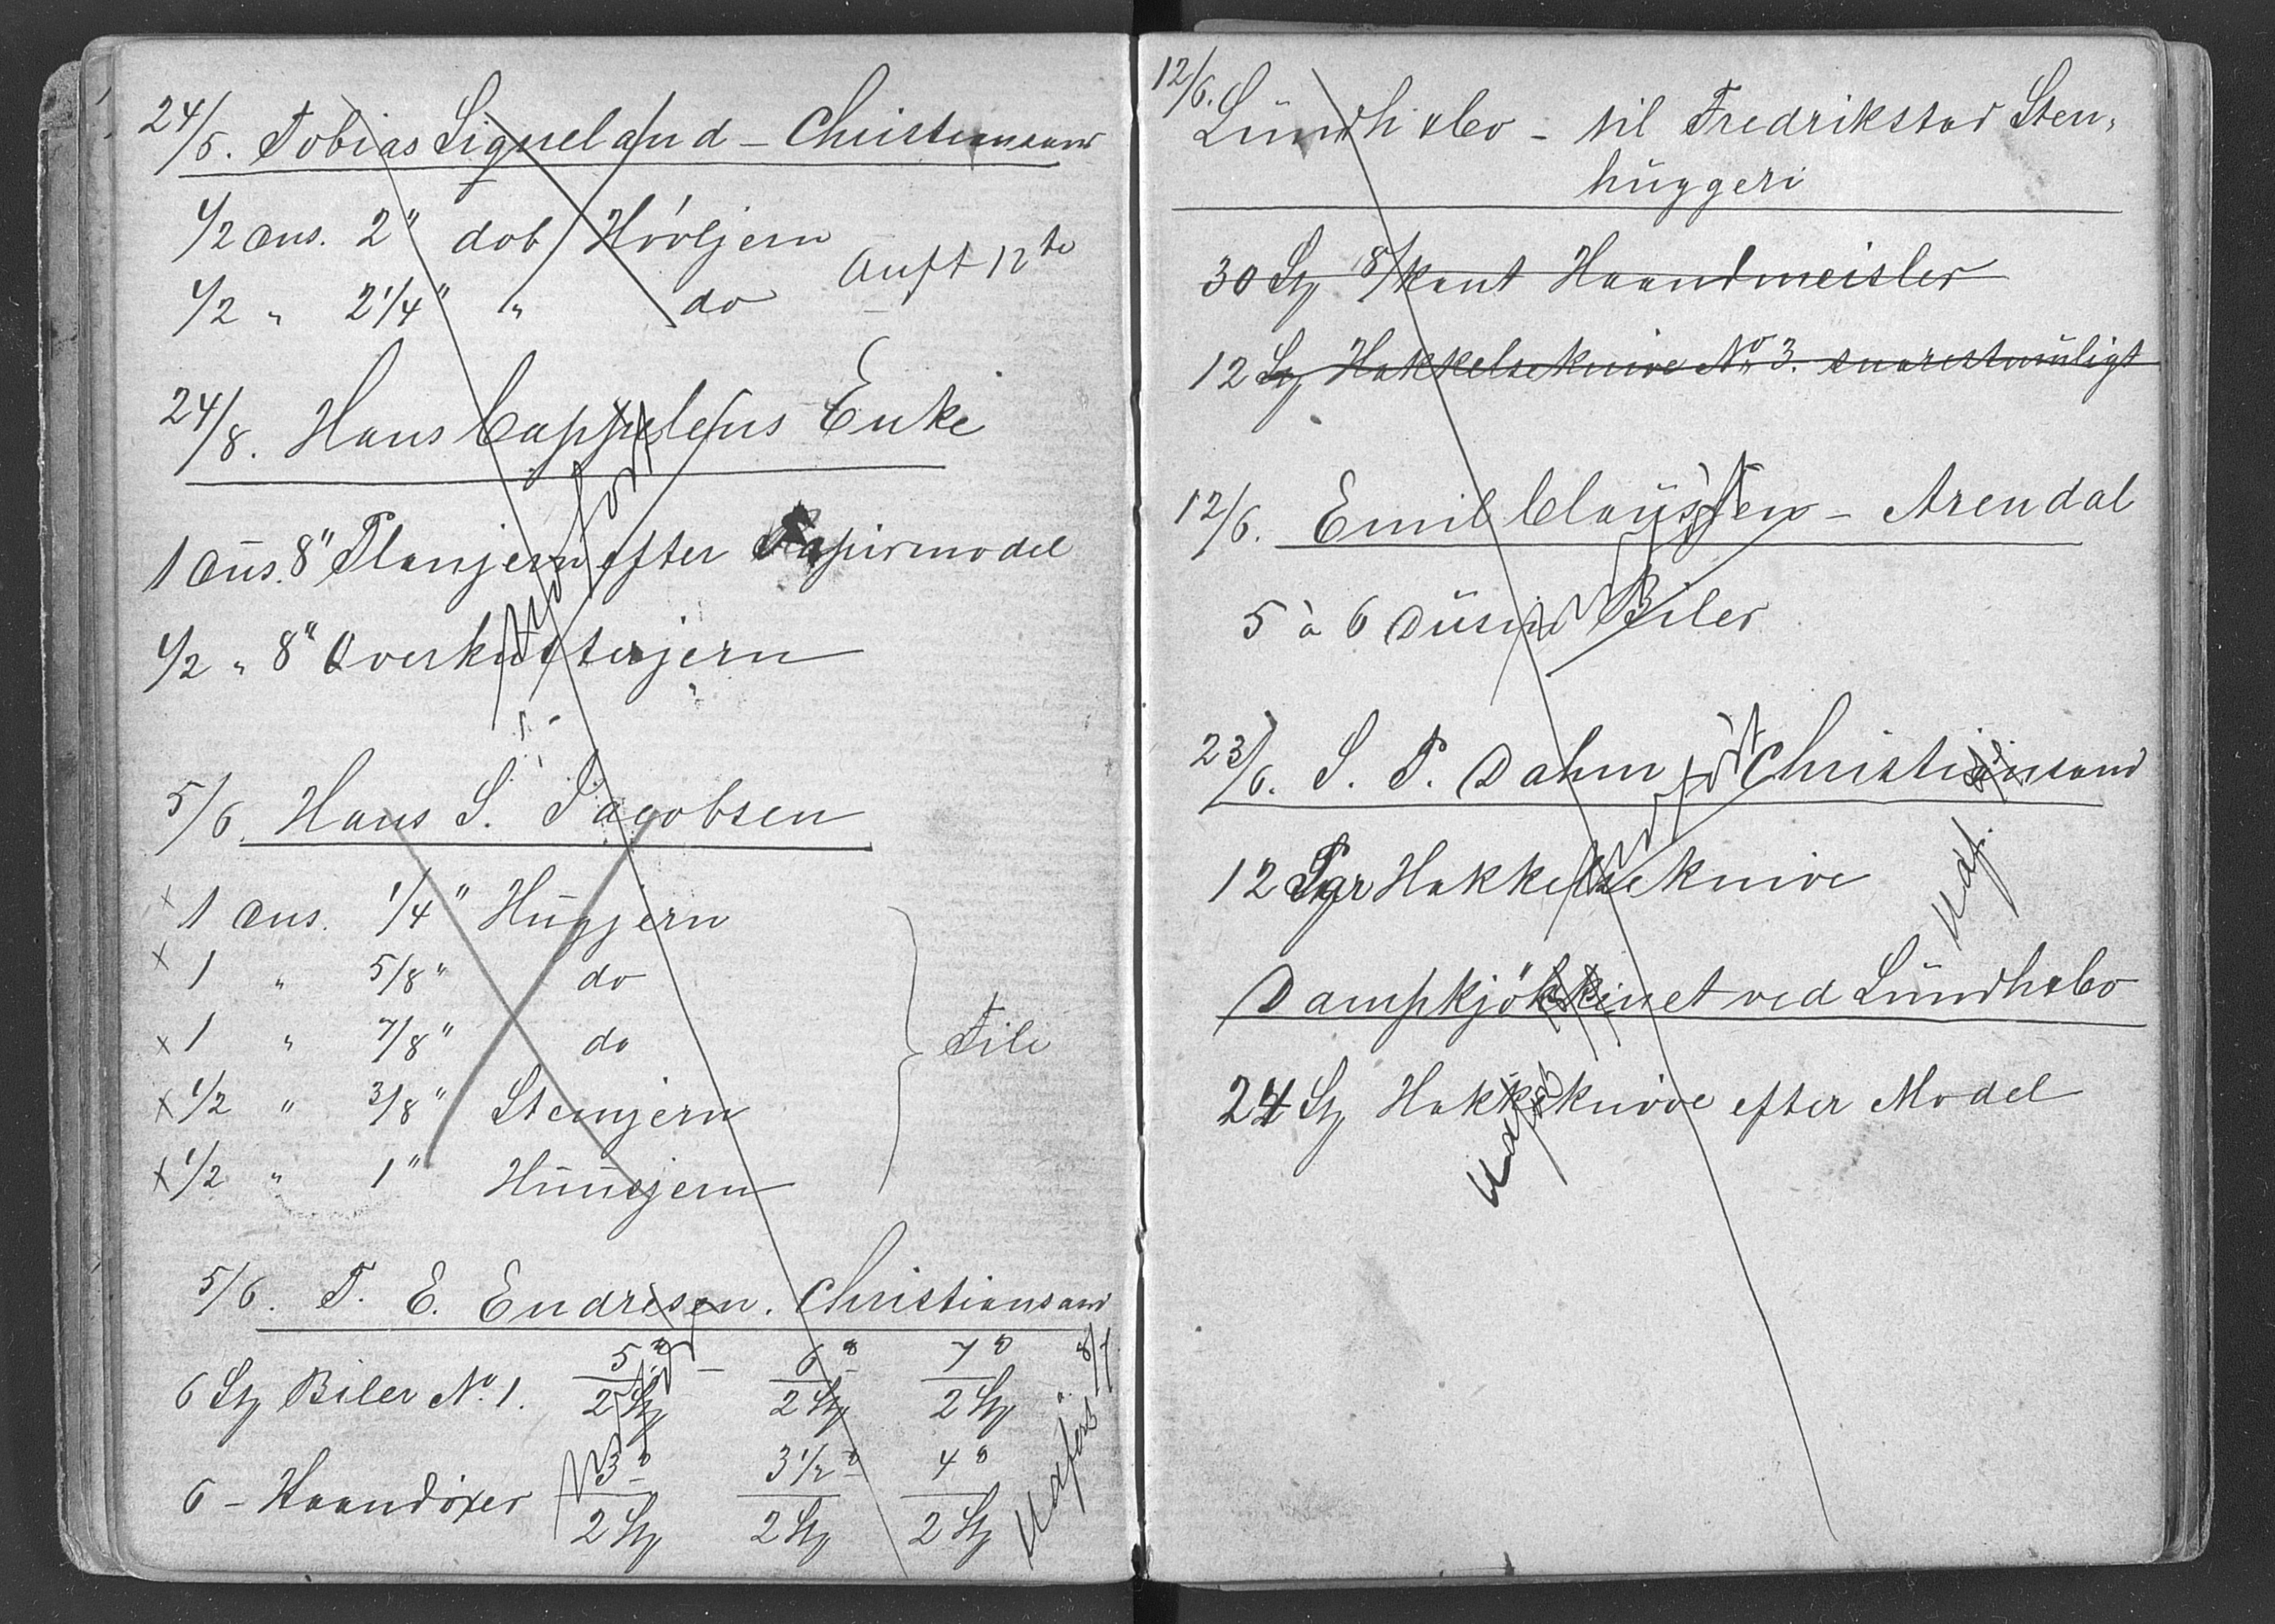 24/5. Tobias Signeland - Christiansand
1/2 Dus. 2" dob Høvljern
1/2 " 2 1/4" " do
Auft 12te
24/8. Hans Cappelens Enke
1 Dus. 8" Planjern efter Papirmodel
1/2 " 8" Overkutterjern
udført
5/6. Hans S. Jacobsen
x 1 Dus. 1/4" Hugjern
x 1 " 5/8" do
x 1 " 7/8" do
x 1/2 " 3/8" Stemjern
x 1/2 " 1" Huusjern
Tili
5/6. T. E. Endresen. Christiansand
6 St Biler No. 1. 5" - 6" 7"
2 St 2 St 2 St
6 - Haandøxer 3" 3 1/2" 4"
2 St 2 St 2 St
udført
Udført 8/7
12/6. Lundh & Co - til Fredrikstad Sten-
huggeri
30 St 8/kant Haandmeisler
12 St Hakkelseknive No 3. snarestmuligt
12/6. Emil Claussen - Arendal
5 à 6 Dusin Biler
udført
23/6. S. P. Dahm Christiansand
12 Par Hakkelseknive
udført
Udf.
Dampkjøkkinet ved Lundh & Co
24 St Hakkeknive efter Model
Udført